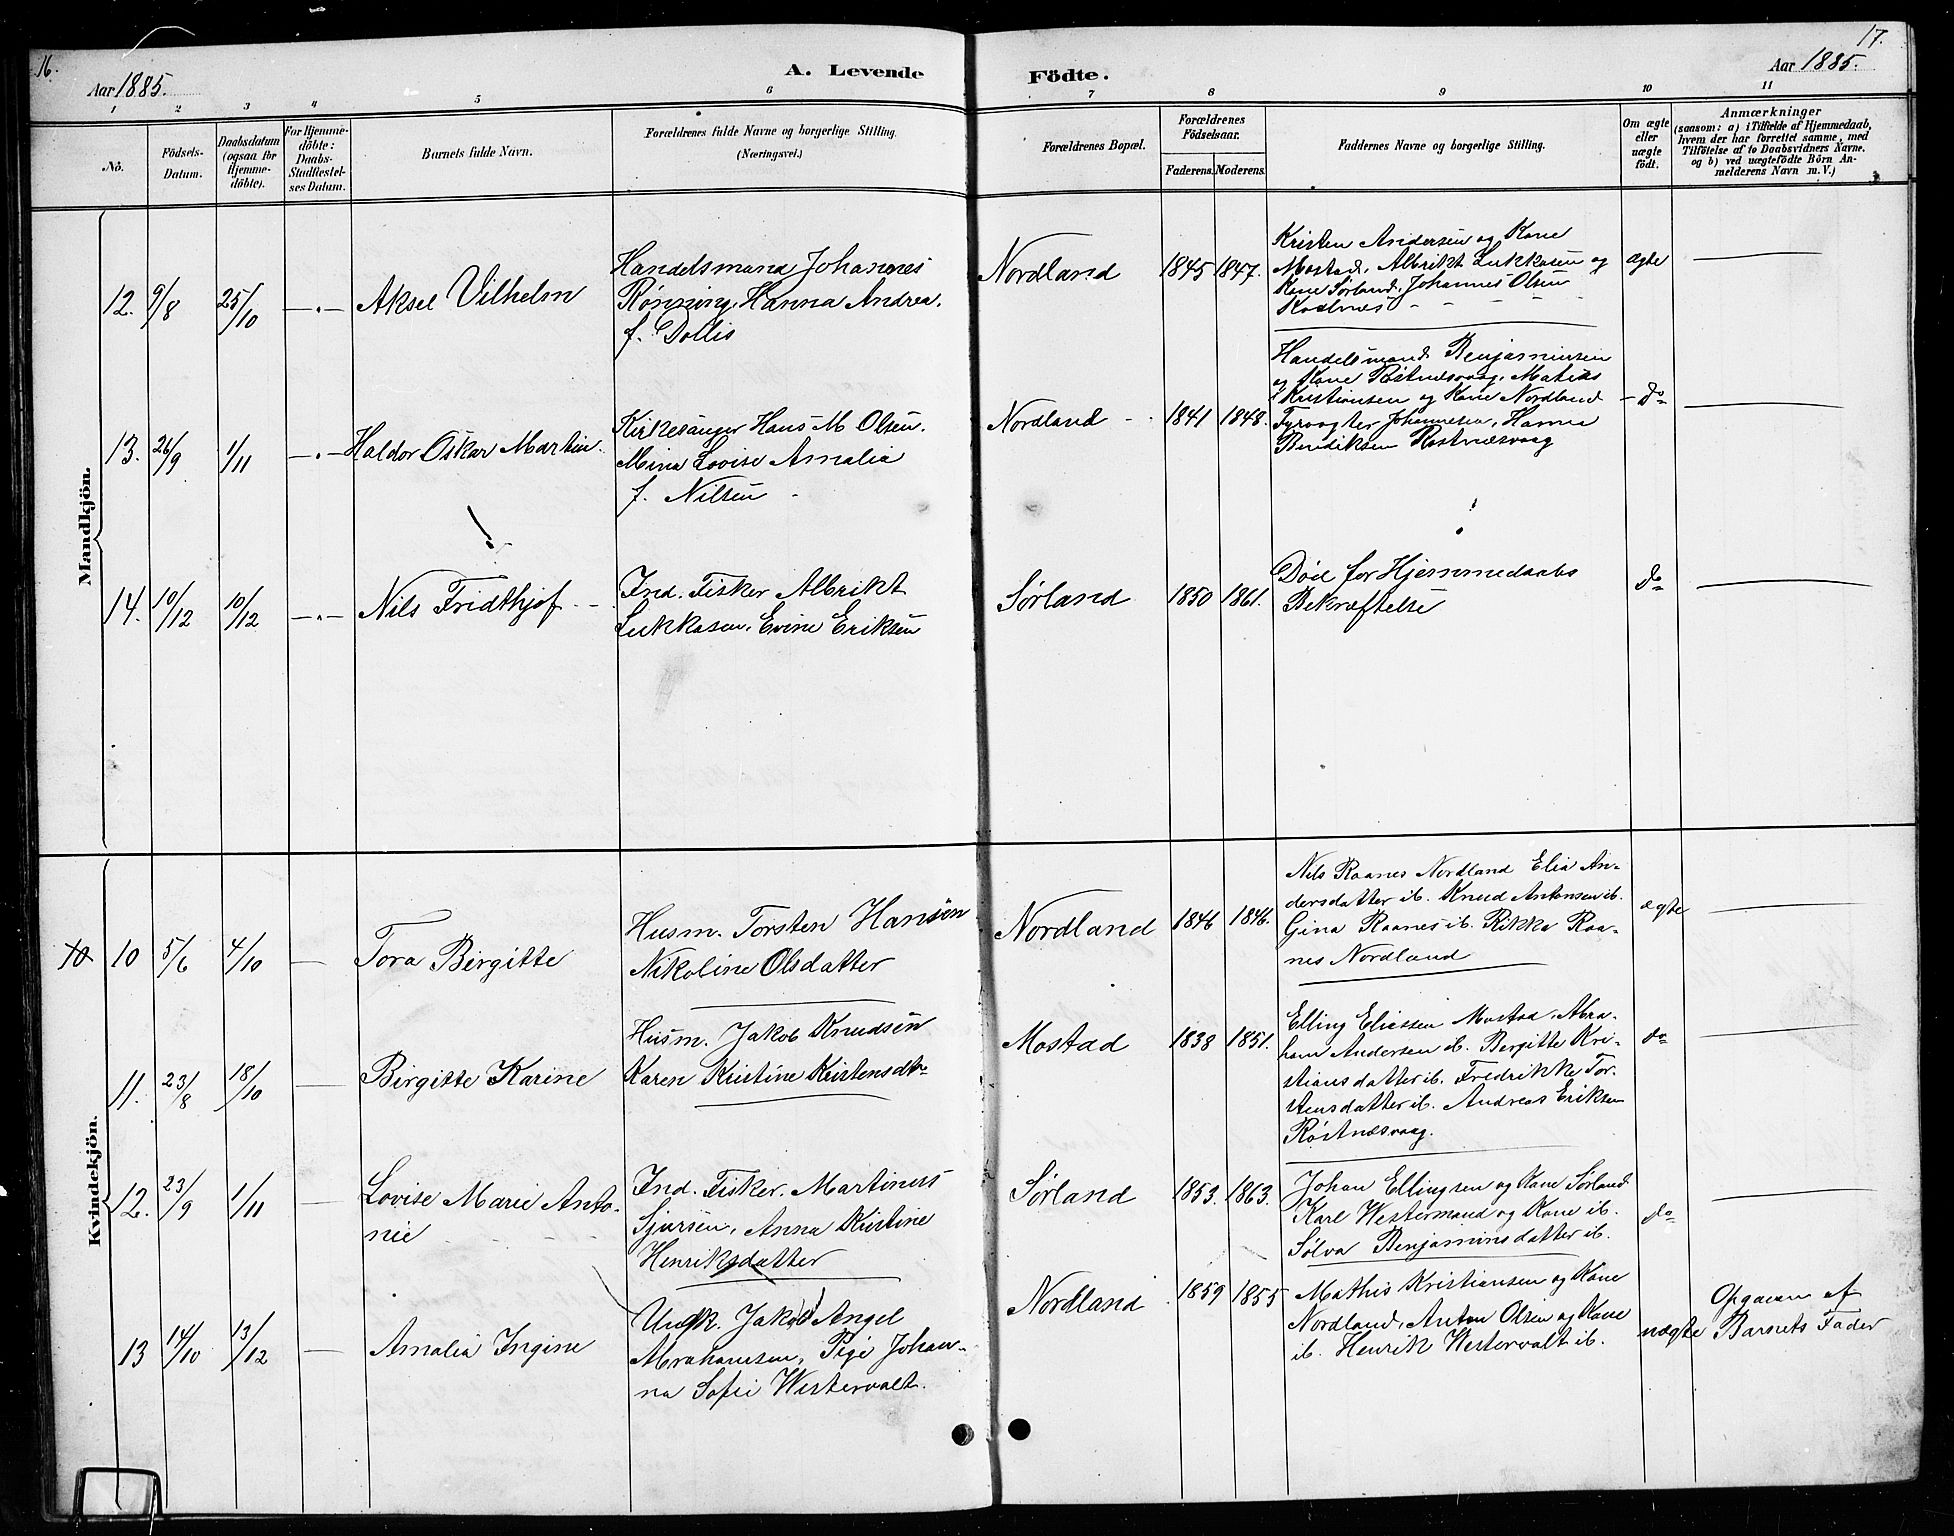 16.
17.
Aar 1885.
A. Levende Födte.
Aar 1885.
1 2 3 4 5 6 7 8 9 10 11
No.
Födsels-
Datum.
Daabsdatum
(ogsaa for
Hjemme-
döbte).
For Hjemme-
döbte:
Daabs-
Stadfæstel-
ses Datum.
Barnets fulde Navn.
Forældrenes fulde Navne og borgerlige Stilling.
(Næringsvei.)
Forældrenes Bopæl.
Forældrenes
Födselsaar.
Faderens. Moderens.
Faddernes Navne og borgerlige Stilling.
Om ægte
eller
uægte
födt.
Anmærkninger
(saasom: a) i Tilfælde af Hjemmedaab,
hvem der har forrettet samme, med
Tilföielse af to Daabsvidners Navne.
og b) ved uægtefödte Börn An-
melderens Navn m. V.)
Mandkjön.
12. 9/8 25/10 —"— Aksel Vilhelm
Handelsmand Johannes
Rønning, Hanna Andrea.
f. Dollis
Nordland 1845 1847.
Kristen Andersen og Kone
Mostad, Albrikt Lukkasen og
Kone Sørland, Johannes Olsen
ægte
13. 26/9 1/11 —"— Haldor Oskar Martin.
Kirkesanger Hans M Olsen.
Mina Lovise Amalia
f. Nilsen
Nordland 1841 1848.
Handelsmand Benjaminsen
og Kone Røstnæsvaag, Matias
Kristiansen og Kone Nordland
Fyrvogter Johannesen, Hanna
Bendiksen Røstnæsvaag
do
14. 10/12 10/12 —"— Nils Fridthjof
Ind. Fisker Albrikt
Lukkasen, Evine Eriksen
Sørland 1850 1861.
Død før Hjemmedaabs
Bekræftelse
do
Kvindekjön.
10 10 5/6 4/10 — Tora Birgitte
Husm. Torsten Hansen
Nikoline Olsdatter
Nordland 1846 1846.
Nils Raanes Nordland Elia An-
dersdatter ib. Knud Antonsen ib.
Gina Raanes ib. Rikka Raa-
nes Nordland
ægte
11. 23/8 18/10 — Birgitte Karine
Husm. Jakob Knudsen
Karen Kristine Kristensdtr
Mostad 1838 1851.
Elling Eliassen Mostad, Abra-
ham Andersen ib. Bergitte Kri-
stiansdatter ib. Fredrikke Tor-
stensdatter ib. Andreas Eriksen
Røstnæsvaag.
do
12. 23/9 1/11 — Lovise Marie Anto-
nie
Ind. Fisker. Martinus
Sjursen, Anna Kristine
Henriksdatter
Sørland 1853. 1863.
Johan Ellingsen og Kone Sørland
Karl Westermand og Kone ib.
Sølva Benjaminsdatter ib.
do
13 14/10 13/12 — Amalia Ingine
Ungk. Jakob Angel
Abrahamsen, Pige Johan-
na Sofie Westervalt.
Nordland 1859 1855
Mathis Kristiansen og Kone
Nordland, Anton Olsen og Kone
ib. Henrik Westervalt ib.
uægte
Opgaven af
Barnets Fader